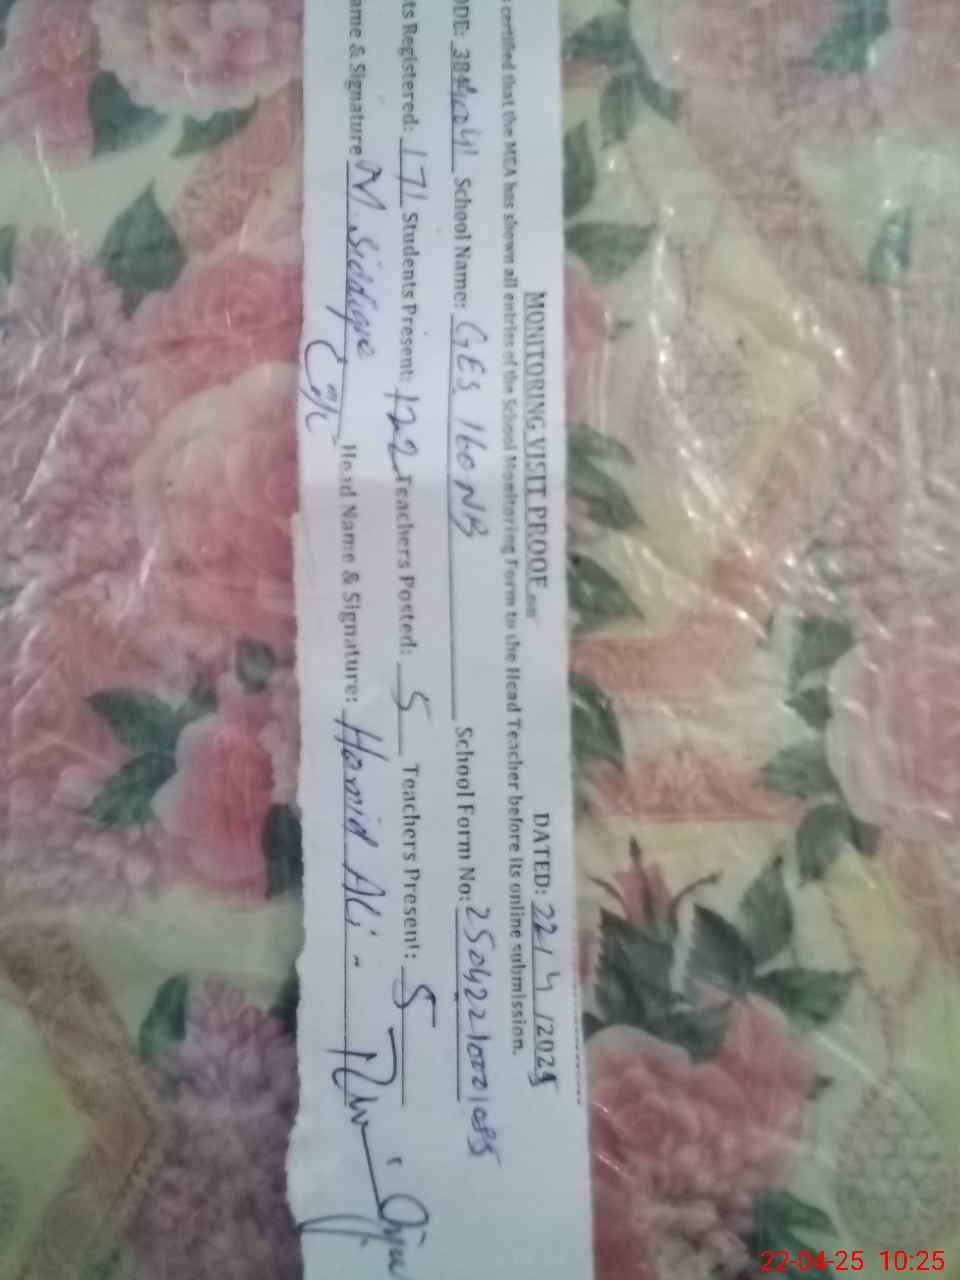 MONITORING VISIT PROOF DATED: 22/4/2025
certified that the MEA has shown all entries of the School Monitoring Form to the Head Teacher before its online submission.
ODE: School Name: GES 160 NB School Form No:
ts Registered: 171 Students Present: 122 Teachers Posted: 5 Teachers Present: 5
ame & Signature M. Siddique Head Name & Signature: Hamid Ali
22-04-25 10:25